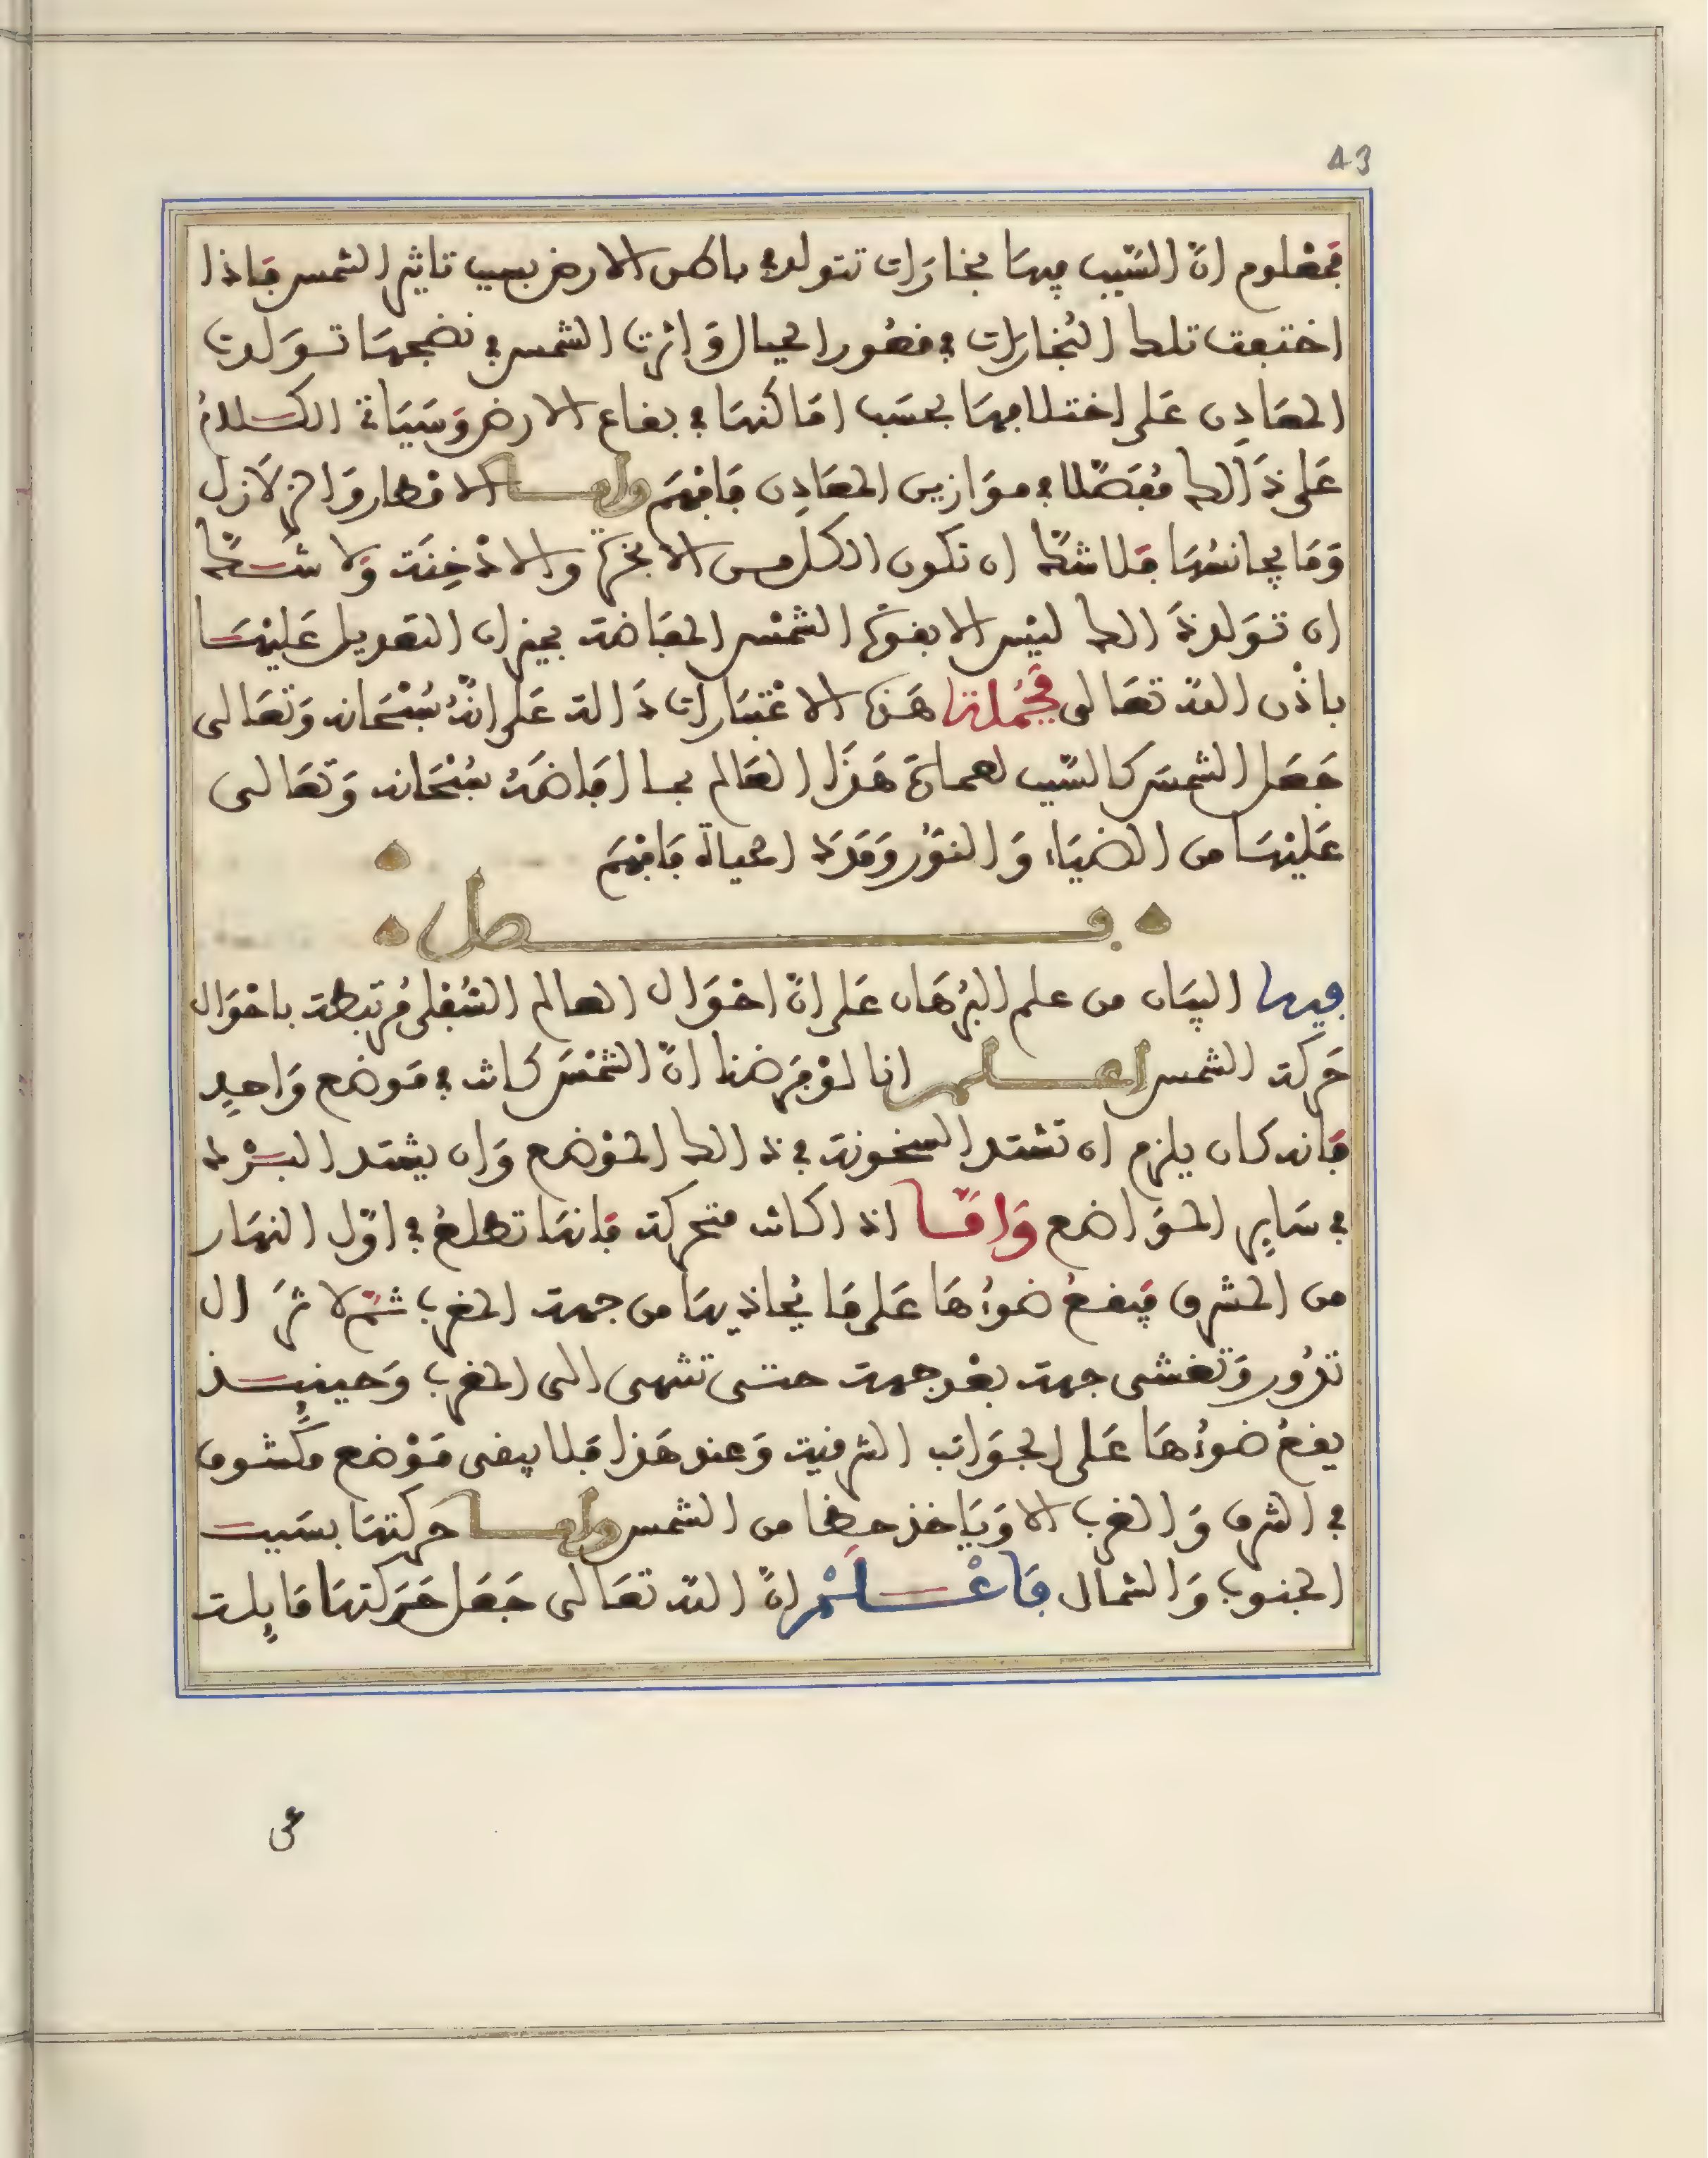 43
فمعلوم انّ السّبب فيها بخارَات تتولد في باطن الارض بسبب تاثير الشمس فاذا
اختبقت تلك البُخارات في قعُور الجبال وَاثرت الشمس في نضجهَا تـوَلدت
المعَادِن عَلى اختلافهَا بحسَب امَاكنهَا في بقاع الارض وَسَيَاتي الكـلامُ
عَلى ذَالك مُفَصّلا في موَازين المعَادِن فَافهَم وامـا الامطار وَالزلَازل
وَمَا يجانسُهَا فلا شكّ ان تكون الكل من الابخرة والادْخِنَة وَلا شَـكّ
ان تَوَلد ذَالك ليْس الا بقوة الشمْس المفَاضة بميزان التعديل عَليْهَـا
باذْن اللّه تعَالى فجُملة هَـذه الاعْتبَارات دَالة عَلى انّهُ سُبْحَانه وَتعَالى
جَعَل الشمسَ كالسّبب لعمارة هَذَا العَالم بمـا افاضَهُ سُبْحَانه وَتعَالى
عَليْهَـا من الضيَاء وَالنوُر وَمَدَد الحياة فَافهَم
فـــصل
فيها البيَان من علم البُرهَان عَلى انّ احْوَال العالم السُفلى مُرتبطة باحْوَال
حَركة الشمس اعـلـم انا لوْ فرَضنا انّ الشمْسَ كانت في مَوضع وَاحِدٍ
فَانه كان يلزم ان تشتد السخونة في ذالك الموْضع وَان يشتد البـرْد
في سَاير الموَاضع وَامّـا اذا كانت متحركة فانهَا تطلعُ في اوّل النهَار
من المشرق فيَقـعُ ضوءُهَا عَلى مَا يُحاذيهَا من جهة المغرب ثـمّ لا تزَال
تدُور وَتغشى جهة بعْد جهة حتـى تنتهى الى المغرب وَحينـيـذ
يقعُ ضوءُهَا عَلى الجوَانب الشرقية وَعند هَذا فلا يبقى مَوْضع مكْشوف
في الشرق وَالغرب الا وَيَاخذ حظا من الشمس وامـا حركتهَا بسَبـب
الجنوب وَالشمال فَاعْـلَـمْ انّ اللّه تعَالى جَعَل حَرَكتهَا مَايلة